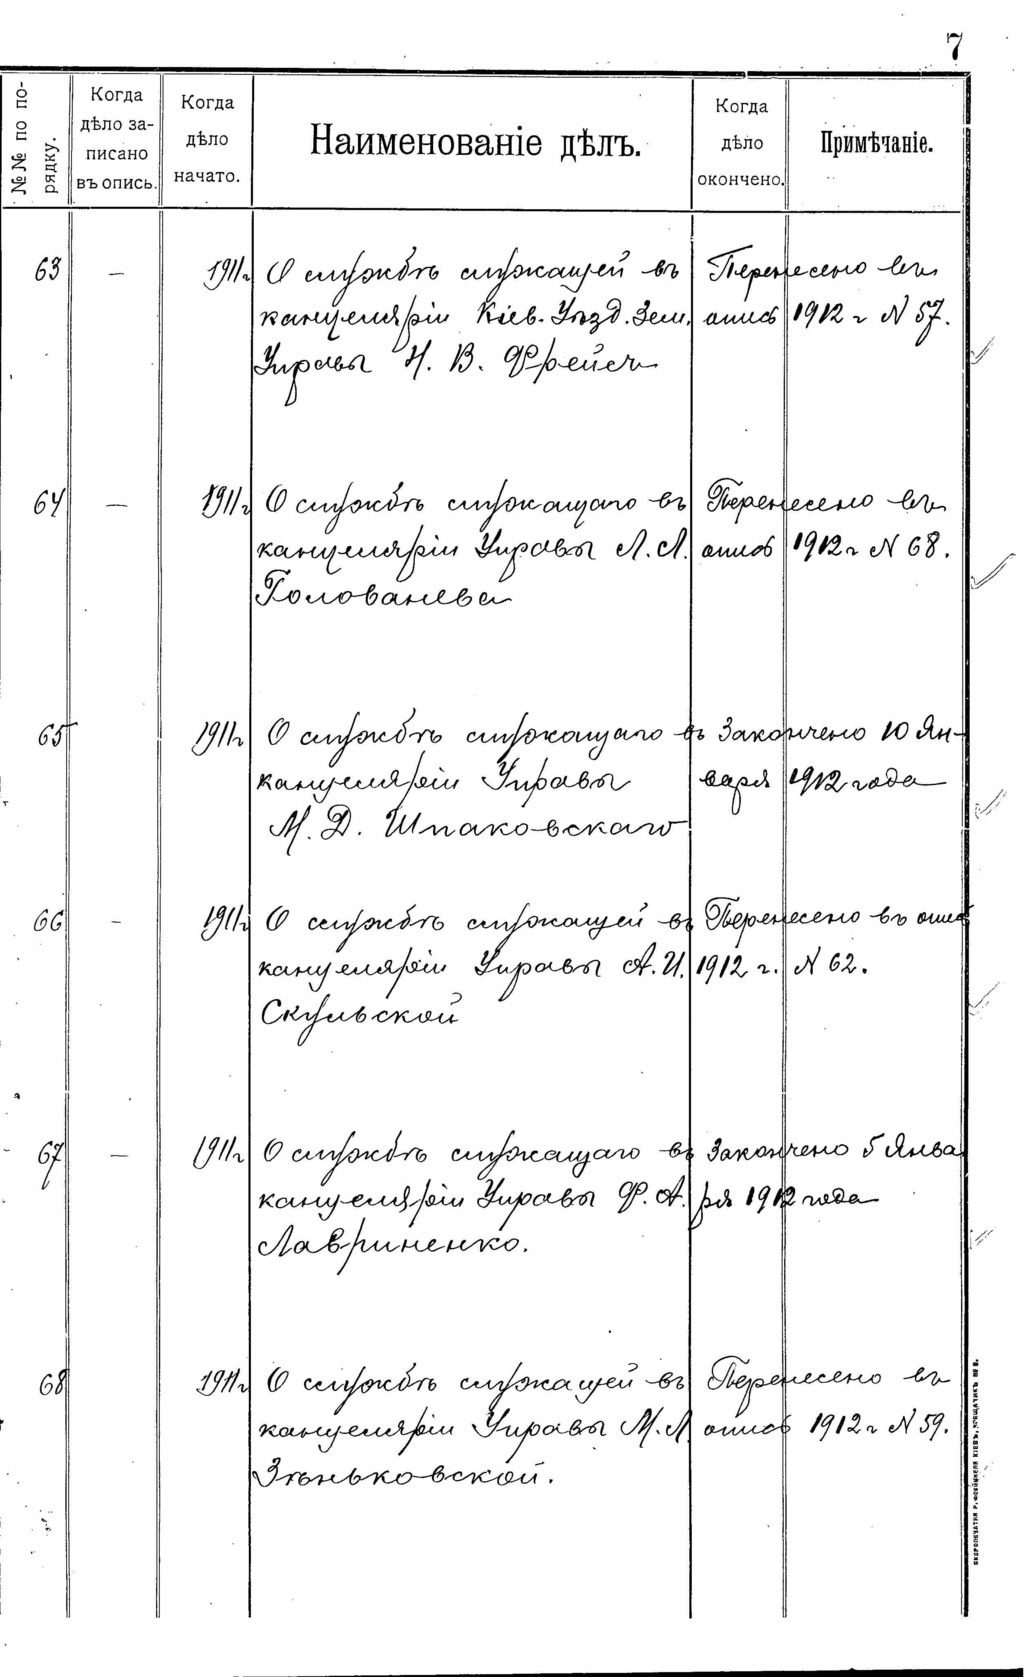 7
№№ по по-
рядку.
Когда
дѣло за-
писано
въ опись.
Когда
дѣло
начато.
Наименованіе дѣлъ.
Когда
дѣло
окончено.
Примѣчаніе.
63 — 1911г О службѣ служащей въ Перенесено въ
канцеляріи Кіев. Уѣзд. Зем. опись 1912 г N 57.
Управы Н. В. Фрейен
64 — 1911г О службѣ служащаго въ Перенесено въ
канцеляріи Управы Л. Л. опись 1912 г N 68.
Голованева
65 1911г О службѣ служащаго въ Закончено 10 Ян-
канцеляріи Управы варя 1912 года
М. Д. Шпаковскаго
66 — 1911г О службѣ служащей въ Перенесено въ опись
канцеляріи Управы А. И. 1912 г. N 62.
Скульской
67 — 1911г О службѣ служащаго въ Закончено 5 Янва
канцеляріи Управы Ф. А. ря 1912 года
Лавриненко.
68 1911г О службѣ служащей въ Перенесено въ
канцеляріи Управы М. Л опись 1912 г N 59.
Зѣньковской.
СКОРОПЕЧАТНЯ Р. КІЕВЪ, КРЕЩАТИКЪ